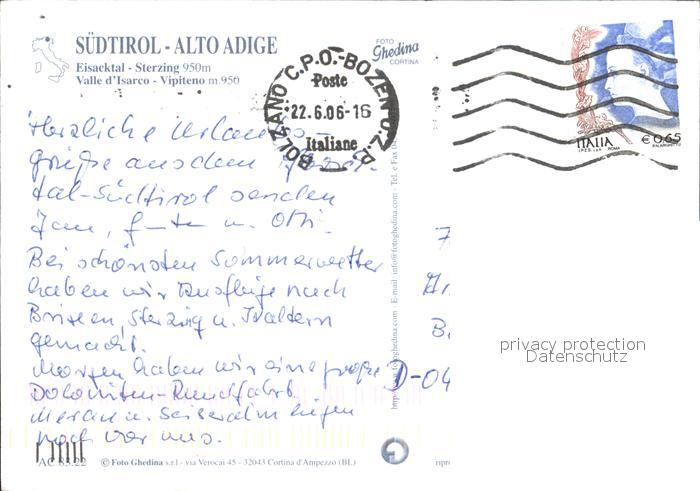 SÜDTIROL - ALTO ADIGE
Eisacktal - Sterzing 950m
Valle d'Isarco - Vipiteno m.950
FOTO
Ghedina
CORTINA
BOLZANO C.P.O.-BOZEN O.Z.B.
Poste
22.6.06-16
Italiane
ITALIA
€ 0,65
I.P.Z.S. S.P.A. ROMA
Herzliche Urlaubs-
grüße aus dem
tal-Südtirol senden
u. Otti.
Bei schönsten Sommerwetter
haben wir Ausflüge nach
Brixen, Sterzing u.
gemacht.
Morgen haben wir eine große
Dolomiten-Rundfahrt.
Meran u. Seiseralm liegen
noch vor uns.
D-04
privacy protection
Datenschutz
http://www.fotoghedina.com - E-mail: info@fotoghedina.com - Tel. e Fax 04
AC 83.22
© Foto Ghedina s.r.l - via Verocai 45 - 32043 Cortina d'Ampezzo (BL)
ripr